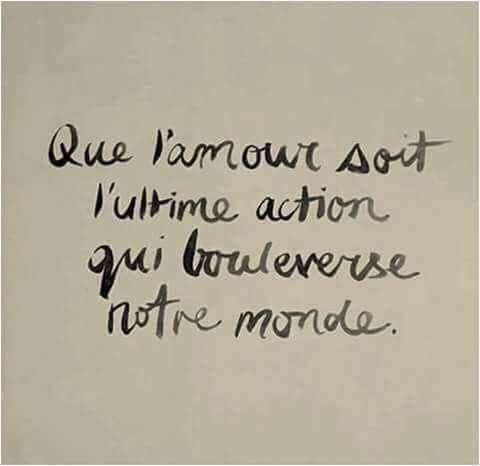 Que l'amour soit
l'ultime action
qui bouleverse
notre monde.